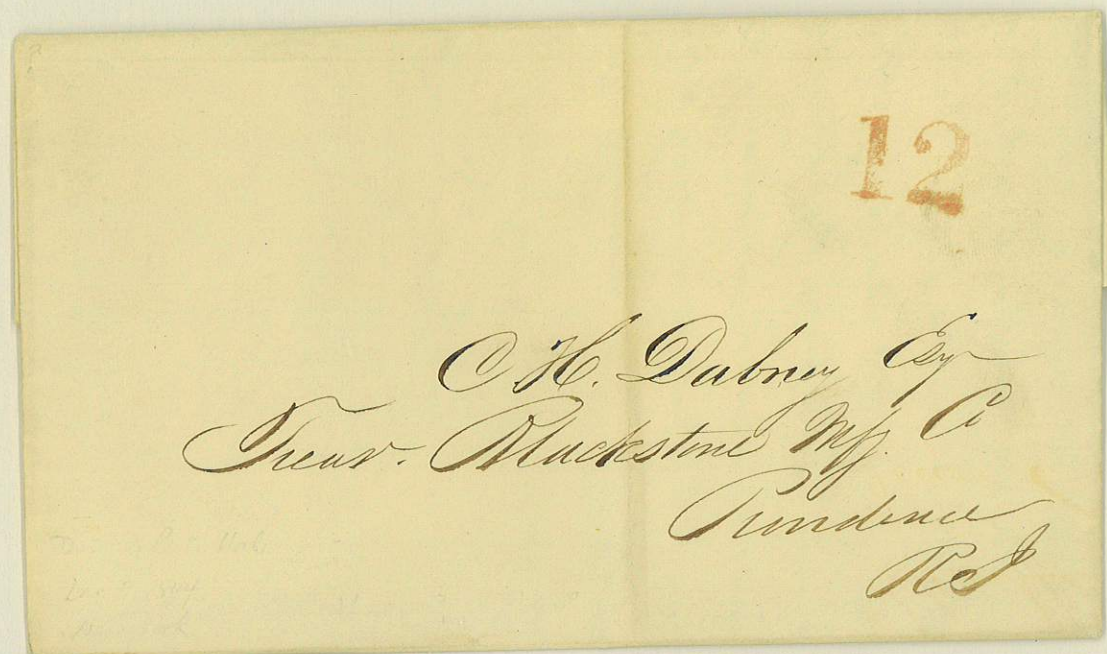 12
C. H. Dabney Esq
Treasr. Blackstone Mfg. Co
Providence
R I